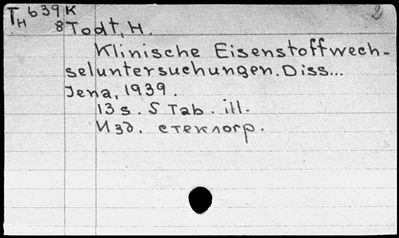 T 639 K 2
H 8 Todt, H.
Klinische Eisenstoffwech-
seluntersuchungen. Diss...
Jena, 1939.
13 s. 5 Tab. ill.
Изд. стеклогр.